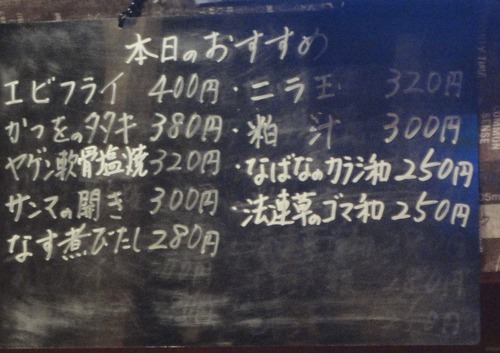 本日のおすすめ
エビフライ 400円・ニラ玉 320円
かつをのタタキ 380円・粕汁 300円
ヤゲン軟骨塩焼 320円・なばなのカラシ和 250円
サンマの開き 300円・法連草のゴマ和 250円
なす煮びたし 280円